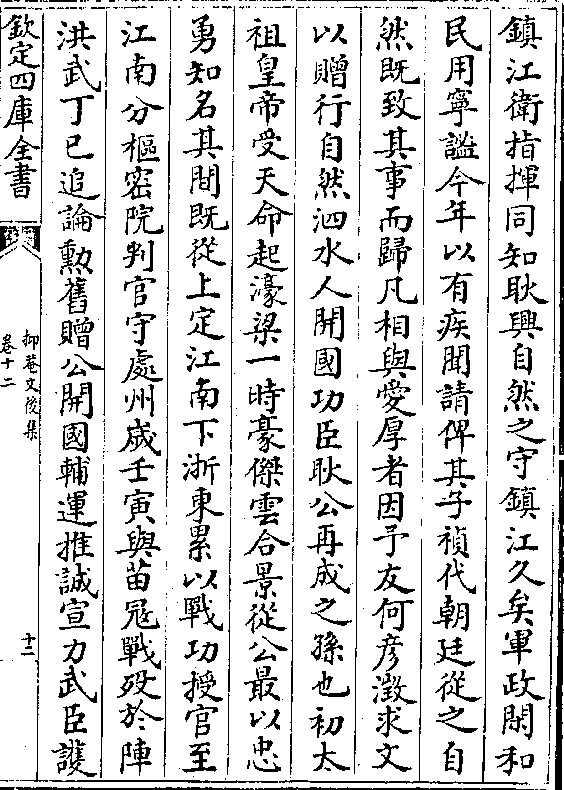 鎮江衛指揮同知耿興自然之守鎮江久矣軍政閑和
民用寧謐今年以有疾聞請俾其子禎代朝廷從之自
然既致其事而歸凡相與愛厚者因予友何彥澂求文
以贈行自然泗水人開國功臣耿公再成之孫也初太
祖皇帝受天命起濠梁一時豪傑雲合景從公最以忠
勇知名其間既從上定江南下浙東累以戰功授官至
江南分樞密院判官守處州歲壬寅與苗冦戰歿於陣
洪武丁巳追論勲舊贈公開國輔運推誠宣力武臣護
欽定四庫全書
抑菴文後集
卷十二
十二